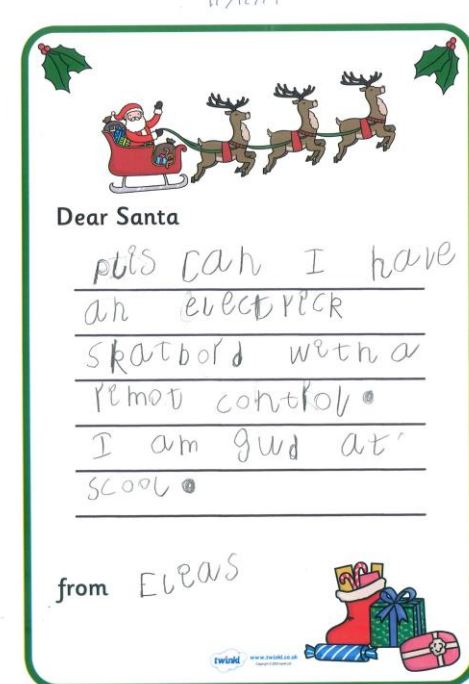 Dear Santa
plis can I have
an electrick
skatbord with a
rimot control.
I am gud at
scool.
from Elias
twinkl www.twinkl.co.uk